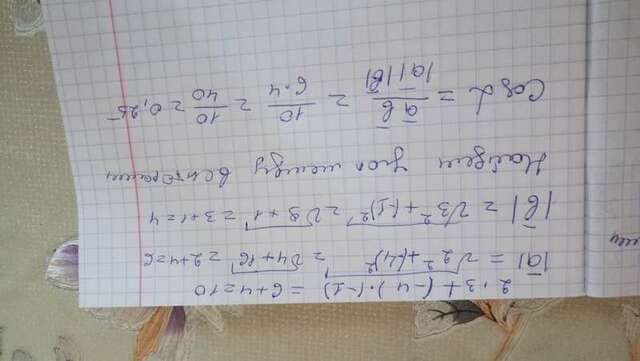 2·3+(-4)·(-1) = 6+4=10
|a̅| = √2²+(-4)² = √4+16 = 2+4=6
|b̅| = √3²+(-1)² = √9+1 = 3+1=4
Найдем угол между векторами
Cos α = a̅b̅/|a̅||b̅| = 10/6·4 = 10/40 = 0,25